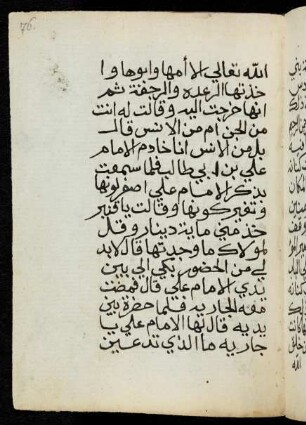 76.
الله تعالي الا أمها وابوها وا
خذتها الرعده والرجفة ثم
انها خرجت اليه وقالت له انت
من الجن أم من الانس قال
بل من الانس انا خادم الامام
علي بن ابي طالب فلما سمعت
بذكر الامام علي اصفر لونها
وتغير كونها وقالت يا قنبر
خذ مني ماية دينار وقل
لمولاك ما وجدتها قال لابد
لي من الحضور بكي الي بين
يدي الامام علي قال فمضت
معه الجاريه فلما حضرة بين
يديه قال لها الامام علي يا
جاريه ما الذي تدعين